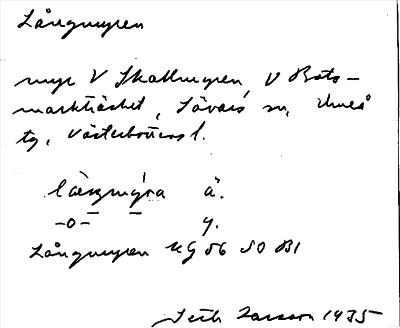 Långmyren
myr V Skallmyren, V Bots-
marksträsket, Sävars sn, Umeå
tg, Västerbottens l.
långmýra ä.
-o- – y.
Långmyren Kg 56 SO B1
Seth Larsson 1935